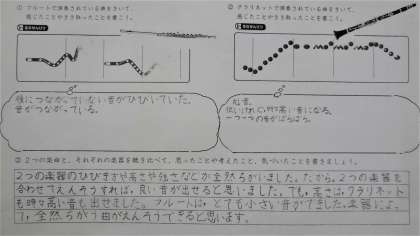 ① フルートで演奏されている曲をきいて、
感じたことやきき取ったことを書こう。
② クラリネットで演奏されている曲をきいて、
感じたことやきき取ったことを書こう。
後につながっていない音がひびいていた。
音がつながっている。
低音。
高い音になる。
一つ一つの音がばらばら。
③ 2つの楽曲と、それぞれの楽器を聴き比べて、思ったことや考えたこと、気づいたことを書きましょう。
2つの楽器のひびきすや高さや強さなどが全然ちがいました。だから、2つの楽器を
合わせてえんそうすれば、良い音が出せると思いました。でも、高さは、クラリネット
も時々高い音も出せました。フルートは、とても小さい音がでました。楽器によっ
て、全然ちがう曲がえんそうできると思います。